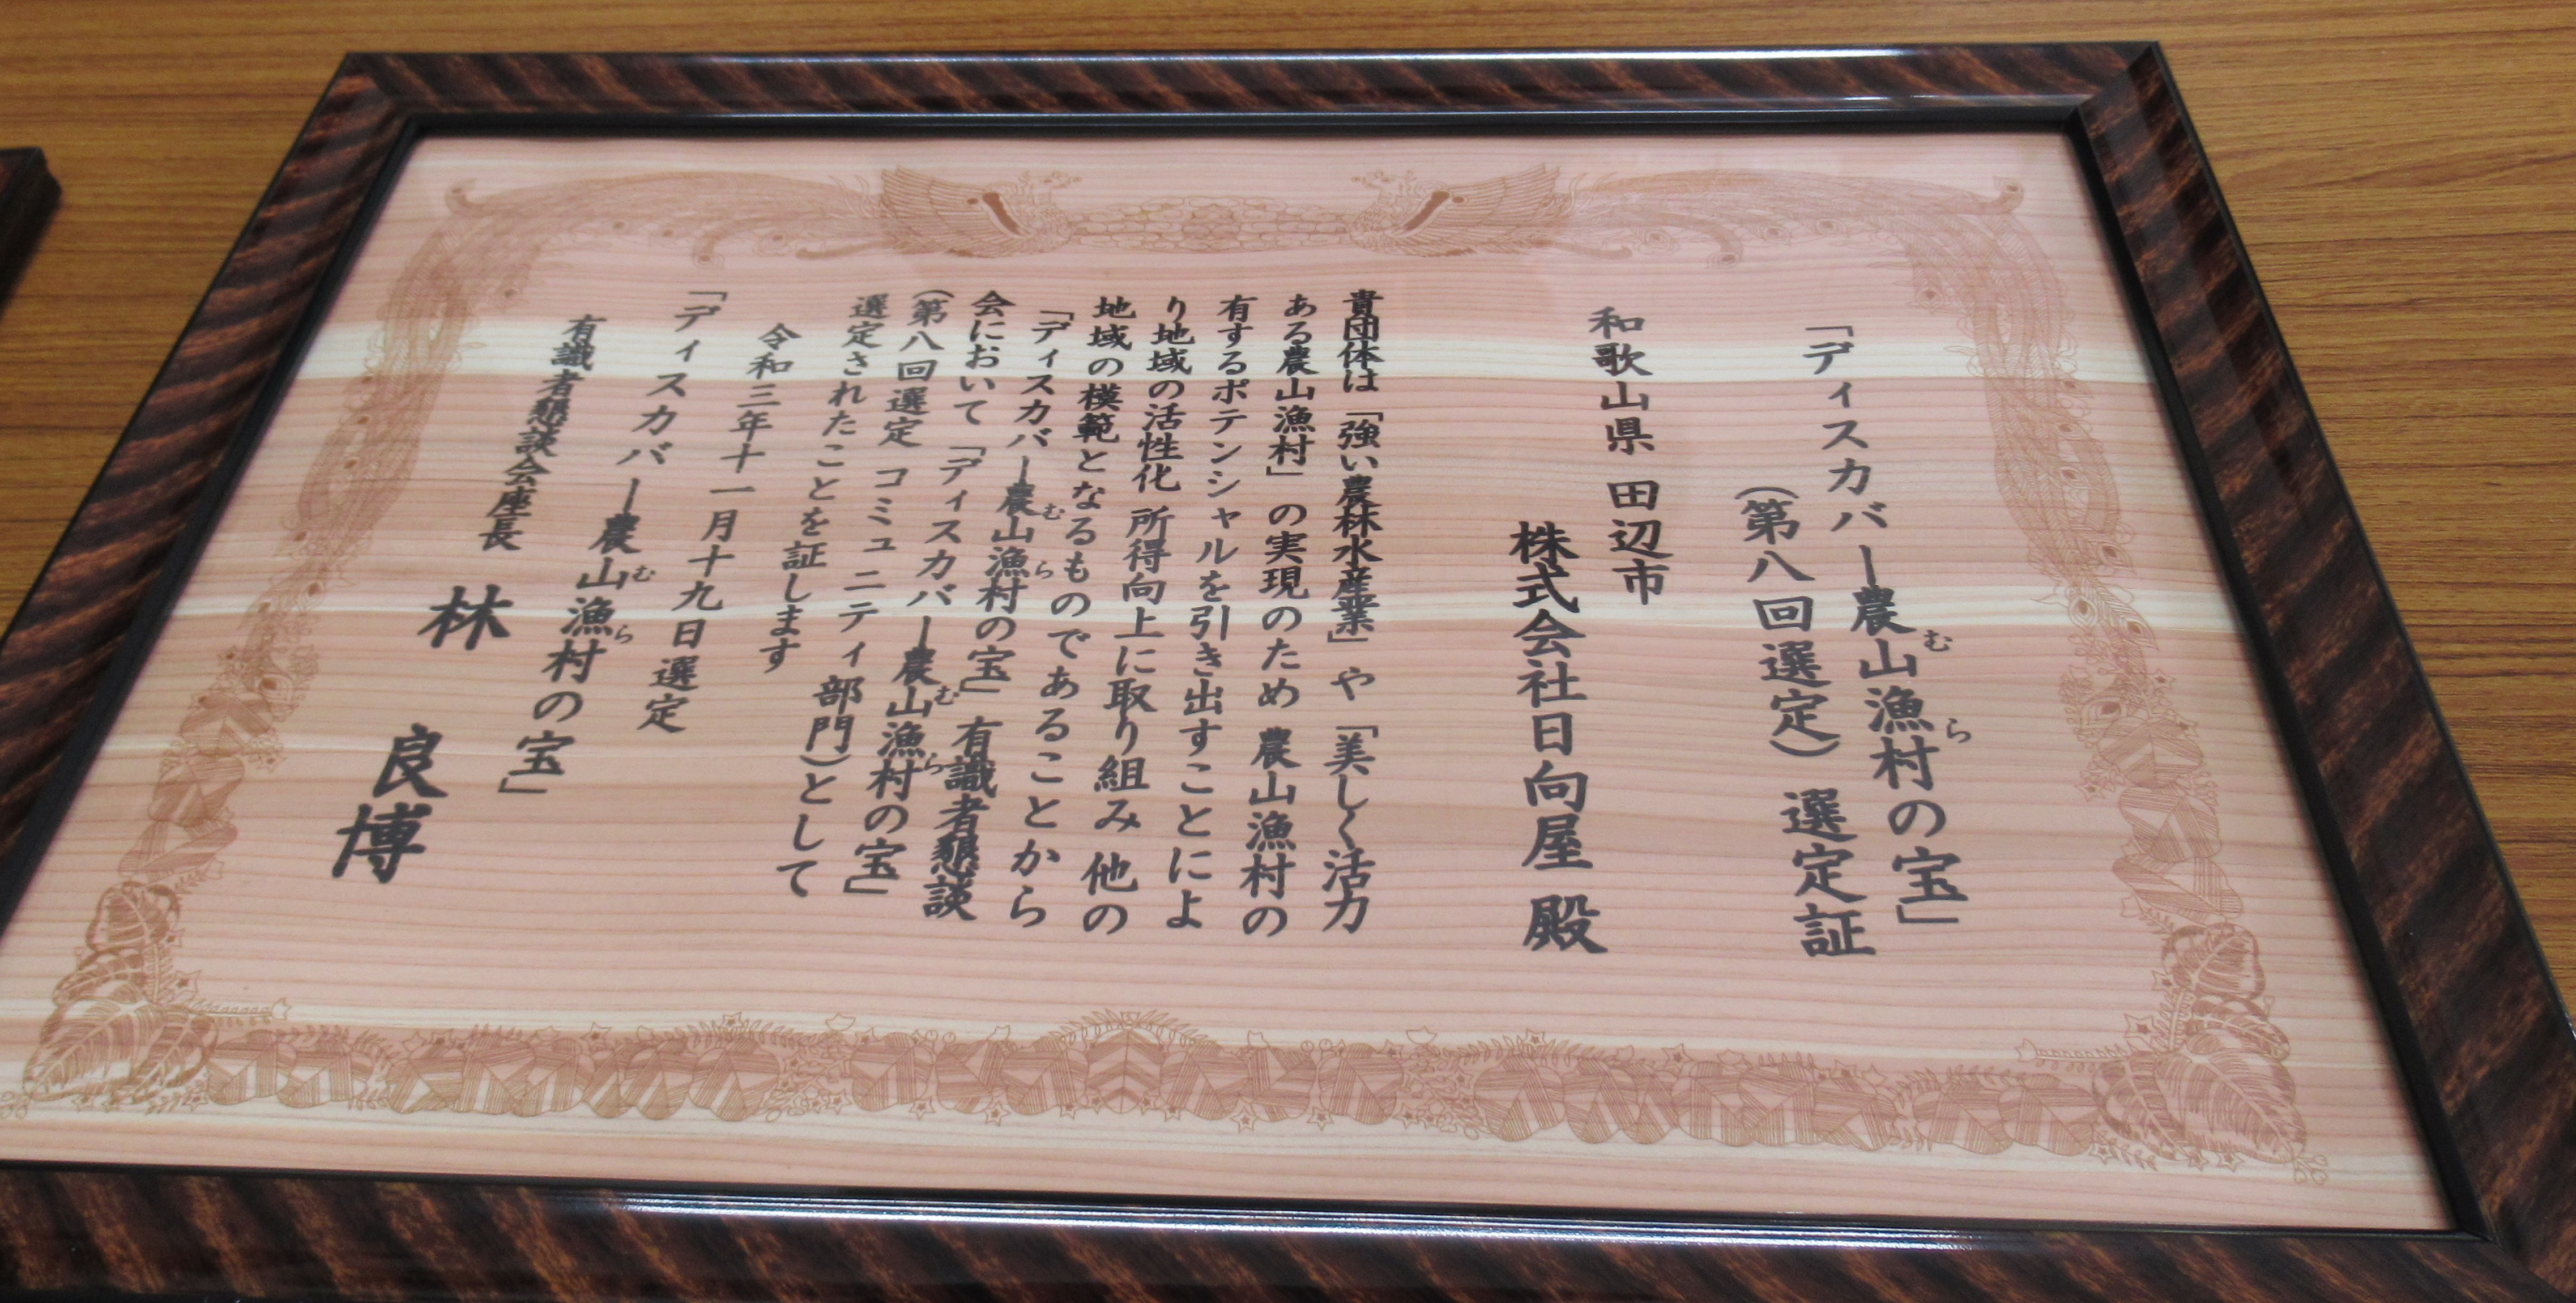 「ディスカバー農山漁村の宝」
（第八回選定）選定証
和歌山県 田辺市
株式会社日向屋 殿
貴団体は「強い農林水産業」や「美しく活力
ある農山漁村」の実現のため 農山漁村の
有するポテンシャルを引き出すことによ
り地域の活性化 所得向上に取り組み 他の
地域の模範となるものであることから
「ディスカバー農山漁村の宝」有識者懇談
会において「ディスカバー農山漁村の宝」
（第八回選定 コミュニティ部門）として
選定されたことを証します
令和三年十一月十九日選定
「ディスカバー農山漁村の宝」
有識者懇談会座長 林 良博